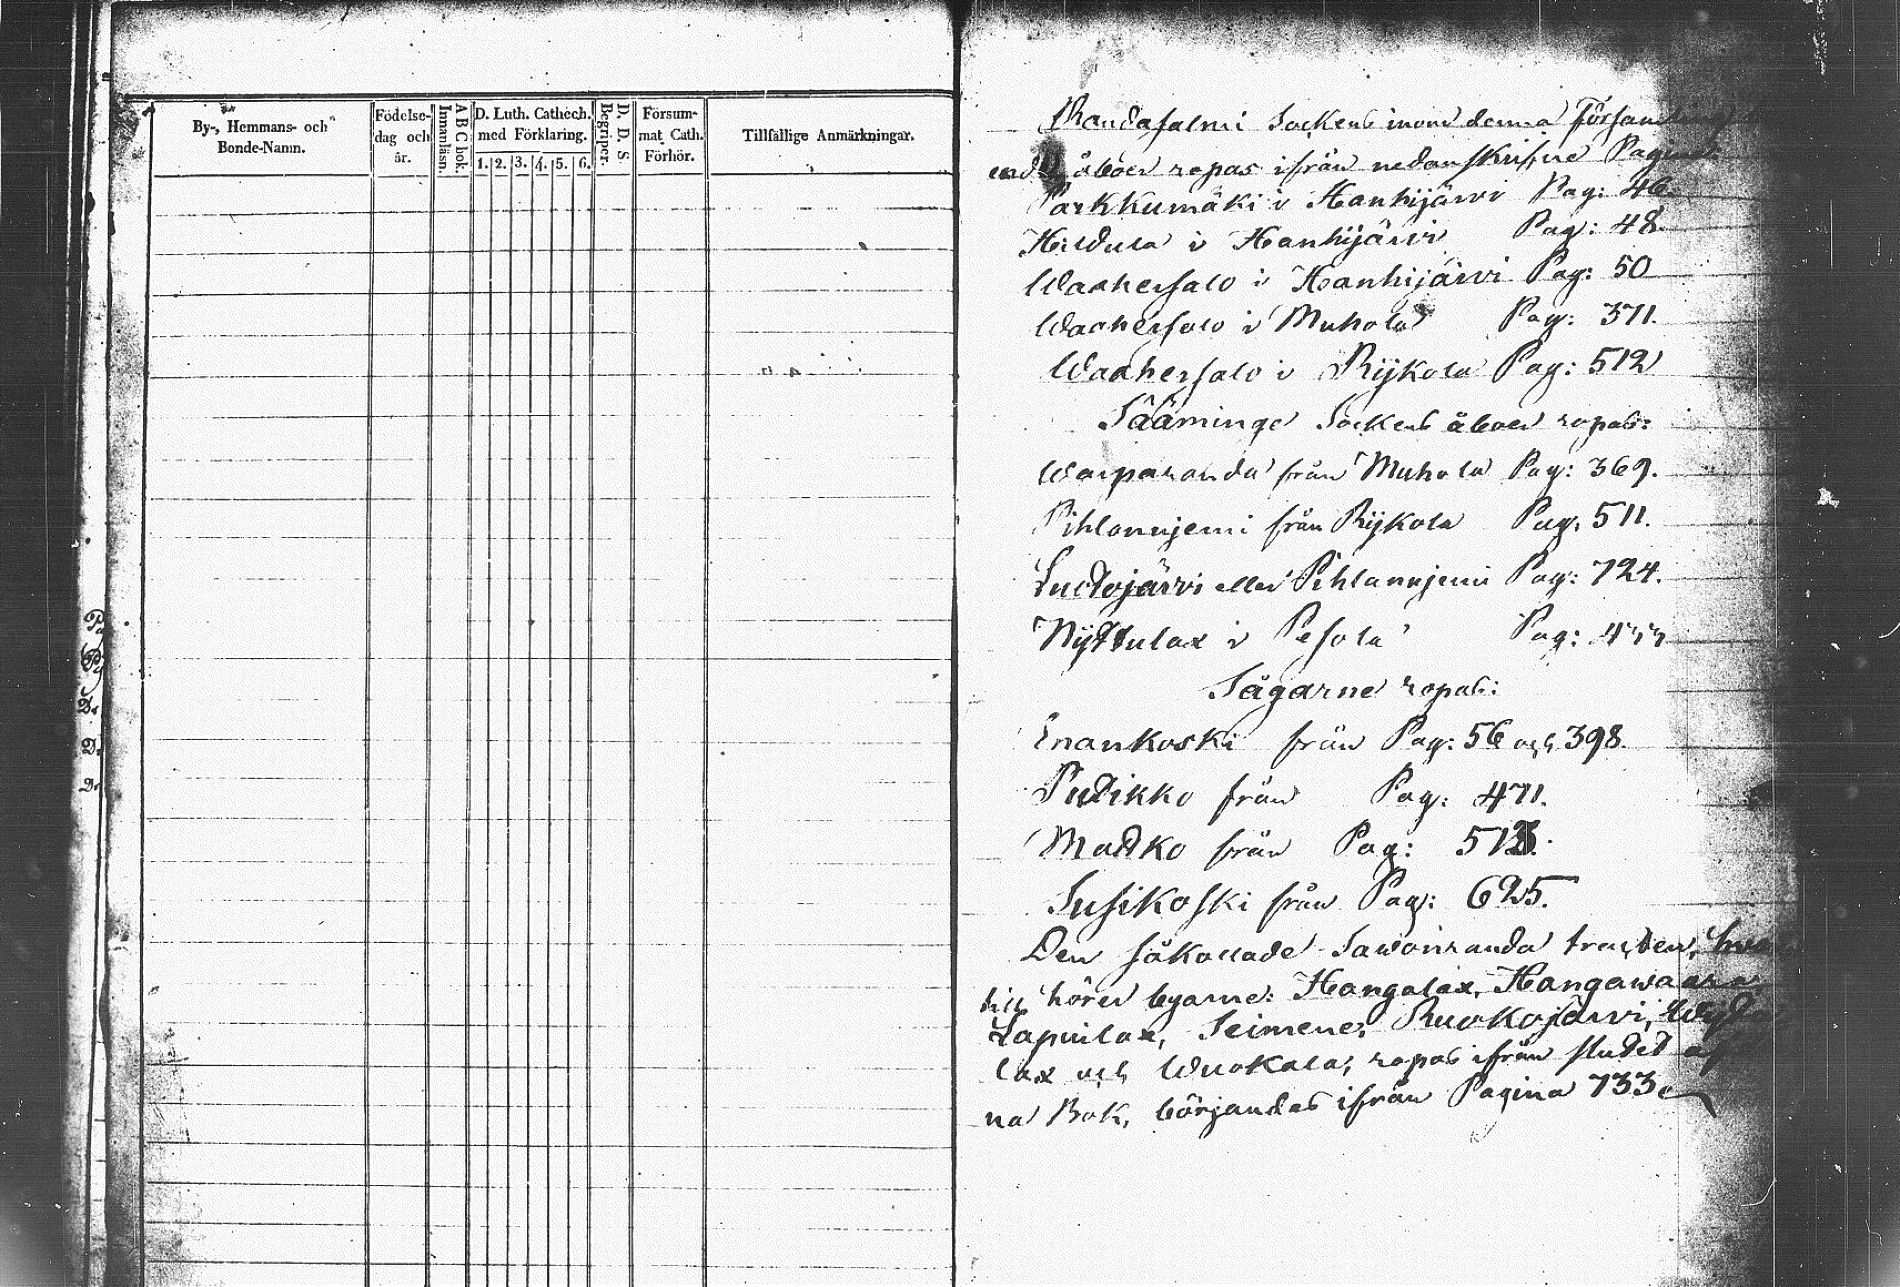 By-, Hemmans- och
Bonde-Namn.
Födelse-
dag och
år.
A B C bok.
Innanläsn.
D. Luth. Cathech.
med Förklaring.
1. 2. 3. 4. 5. 6.
D. D. S.
Begriper.
Försum-
mat Cath.
Förhör.
Tillfällige Anmärkningar.
Randasalmi Sockens inom denna Församling
åboer ropas ifrån nedanskrifne
Parkkumäki i Hanhijärvi Pag: 46
Hildula i Hanhijärvi Pag: 48.
Waahersalo i Hanhijärvi Pag: 50
Waahersalo i Muhola Pag: 371.
Waahersalo i Rijkola Pag: 512
Sääminge Sockens åboer ropas:
Warparanda från Muhola Pag: 369.
Pihlaniyemi från Rijkola Pag: 511.
eller Pihlaniyemi Pag: 724.
Nijttulax i Pesola Pag:
Sågarne ropas:
Enankoski från Pag: 56 och 398.
Putikko från Pag: 471.
Matko från Pag:
Susikoski från Pag: 625.
Den såkallade Sawonranda tracten,
till hörer byarne: Hangalax, Hangawaara
Lapuilax, Seimene, Ruokojärvi,
lax och Wuokala, ropas ifrån slutet af
na Bok, börjandes ifrån Pagina 733.